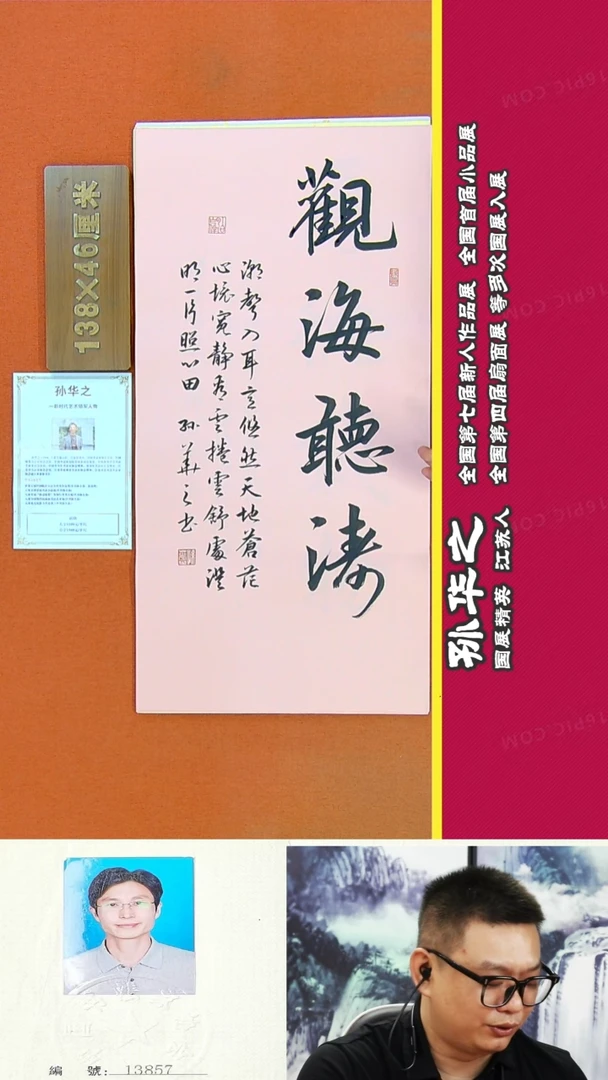 觀海聽濤
潮聲入耳意悠然天地蒼茫
心境寬靜看雲捲雲舒處澄
明一片照心田 孫華之書
138×46厘米
孙华之
孙华之
国展精英 江苏人
全国第七届新人作品展 全国首届小品展
全国第四届扇面展 等多次国展入展
編 號: 13857